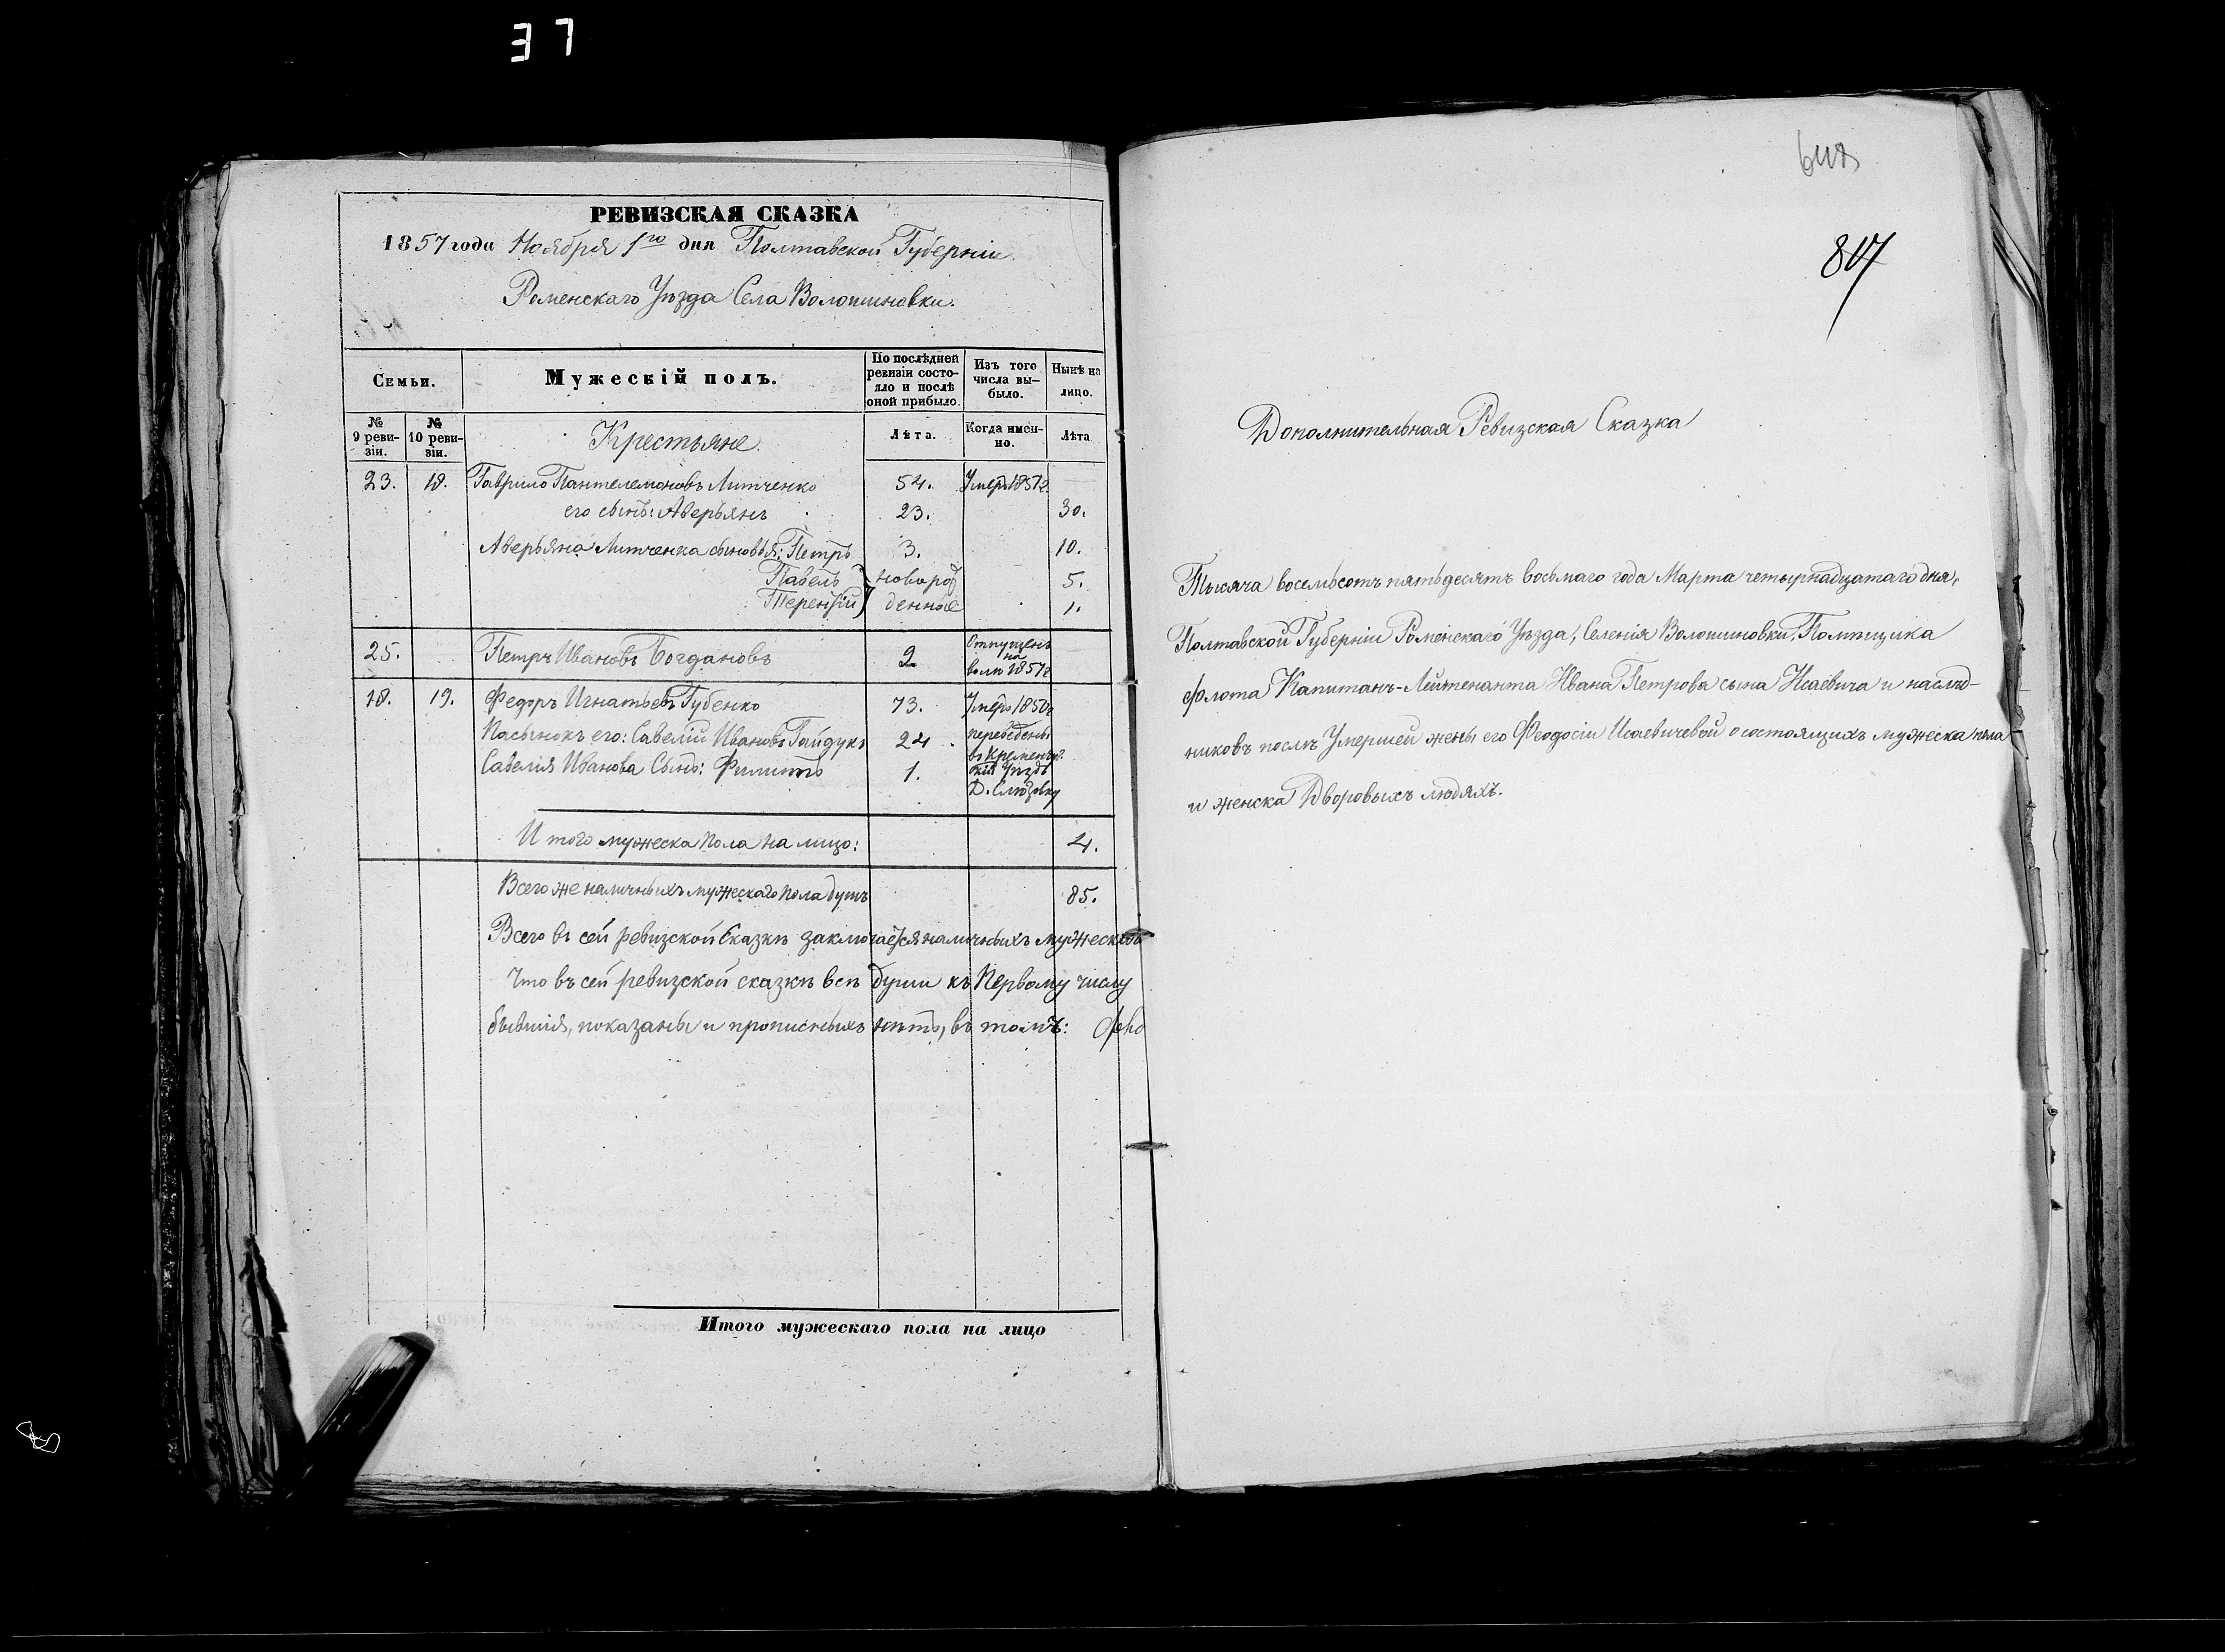 37
РЕВИЗСКАЯ СКАЗКА
1857 года Ноября 1го дня Полтавской Губерніи
Роменскаго Уѣзда Села Волошиновки.
Семьи.
Мужескій полъ.
По послѣдней ревизіи состо-
яло и послѣ
оной прибыло.
Изъ того
числа вы-
было.
Нынѣ на
лицо.
№ 9 реви-
зіи.
№ 10 реви-
зіи.
Крестьяне.
Лѣта.
Когда имен-
но.
Лѣта
23. 18. Гаврило Пантелемоновъ Литченко 54. Умеръ 1851г.
его сынъ: Аверьянъ 23. 30.
Аверьяна Литченка сыновья: Петръ 3. 10.
Павелъ новорож 5.
Терентій денные 1.
25. Петръ Ивановъ Богдановъ 2. Отпущенъ
на
волю 1851г
18. 19. Федоръ Игнатьевъ Губенко 73. Умеръ 1850г
Пасынокъ его: Савелій Ивановъ Гайдукъ 24. переведены
въ Кременчуг.
Савелія Иванова Сынъ: Филипъ 1. скій Уѣздъ
И того мужеска пола на лицо: 4.
Всего же наличныхъ мужескаго пола душъ 85.
Всего въ сей ревизской Сказкѣ заключается наличныхъ мужескаго
Что въ сей ревизской сказкѣ всѣ души къ Первому числу
бывшія, показаны и прописныхъ нѣтъ, въ томъ:
Итого мужескаго пола на лицо
807
Дополнительная Ревизская Сказка
Тысяча восемьсотъ пятьдесятъ восьмаго года Марта четырнадцатаго дня,
Полтавской Губерніи Роменскаго Уѣзда, Селенія Волошиновки, Помѣщика
флота Капитанъ-Лейтенанта Ивана Петрова сына Исаевича и наслѣд-
никовъ послѣ Умершей жены его Феодосіи Исаевичевой о состоящихъ мужеска пола
и женска Дворовыхъ людяхъ.